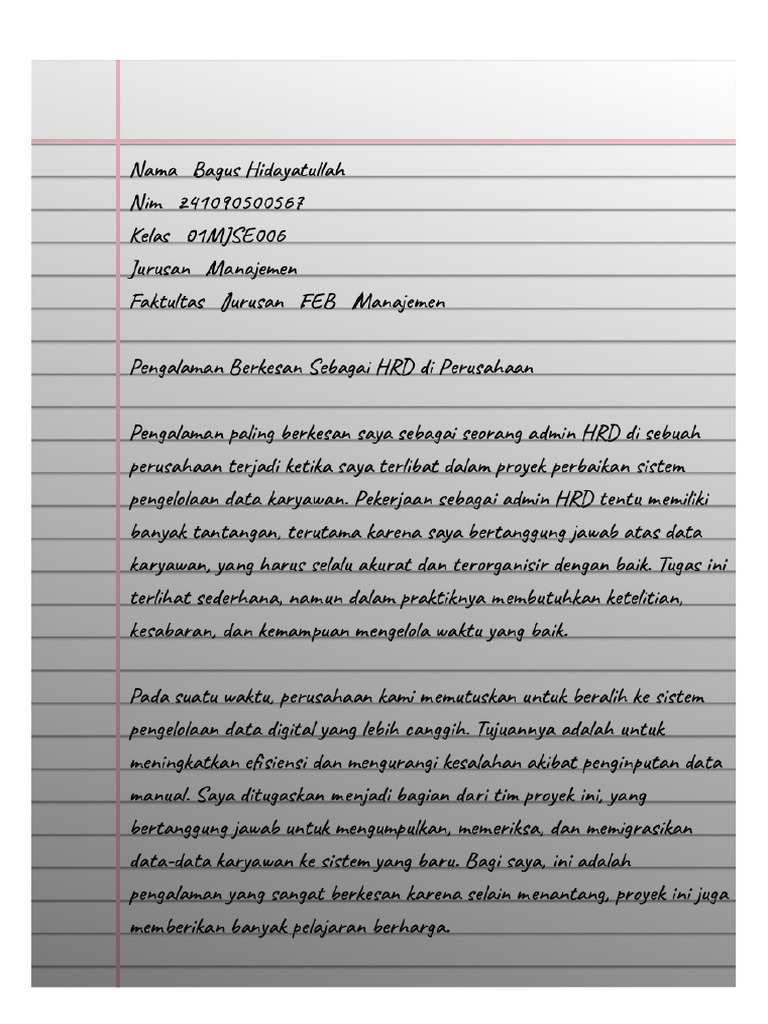 Nama Bagus Hidayatullah
Nim 241090500567
Kelas 01MJSE006
Jurusan Manajemen
Faktultas Jurusan FEB Manajemen
Pengalaman Berkesan Sebagai HRD di Perusahaan
Pengalaman paling berkesan saya sebagai seorang admin HRD di sebuah
perusahaan terjadi ketika saya terlibat dalam proyek perbaikan sistem
pengelolaan data karyawan. Pekerjaan sebagai admin HRD tentu memiliki
banyak tantangan, terutama karena saya bertanggung jawab atas data
karyawan, yang harus selalu akurat dan terorganisir dengan baik. Tugas ini
terlihat sederhana, namun dalam praktiknya membutuhkan ketelitian,
kesabaran, dan kemampuan mengelola waktu yang baik.
Pada suatu waktu, perusahaan kami memutuskan untuk beralih ke sistem
pengelolaan data digital yang lebih canggih. Tujuannya adalah untuk
meningkatkan efisiensi dan mengurangi kesalahan akibat penginputan data
manual. Saya ditugaskan menjadi bagian dari tim proyek ini, yang
bertanggung jawab untuk mengumpulkan, memeriksa, dan memigrasikan
data-data karyawan ke sistem yang baru. Bagi saya, ini adalah
pengalaman yang sangat berkesan karena selain menantang, proyek ini juga
memberikan banyak pelajaran berharga.